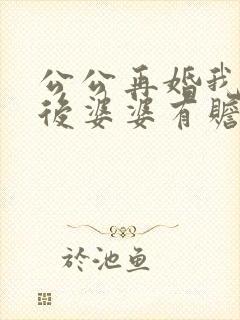 公公再婚我
後婆婆有贍
於池鱼